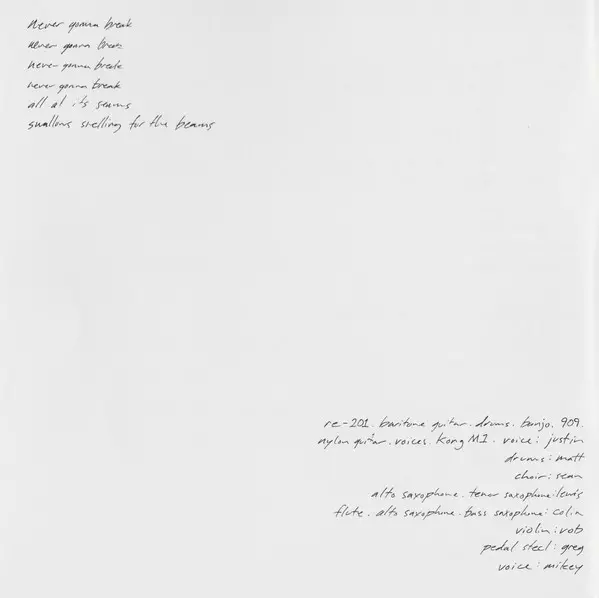 never gonna break
never gonna break
never gonna break
never gonna break
all at its seams
swallows swelling for the beams
re-201. baritone guitar. drums. banjo. 909.
nylon guitar. voices. Korg M1. voice: justin
drums: matt
choir: sean
alto saxophone. tenor saxophone: lewis
flute. alto saxophone. bass saxophone: colin
violin: rob
pedal steel: greg
voice: mikey